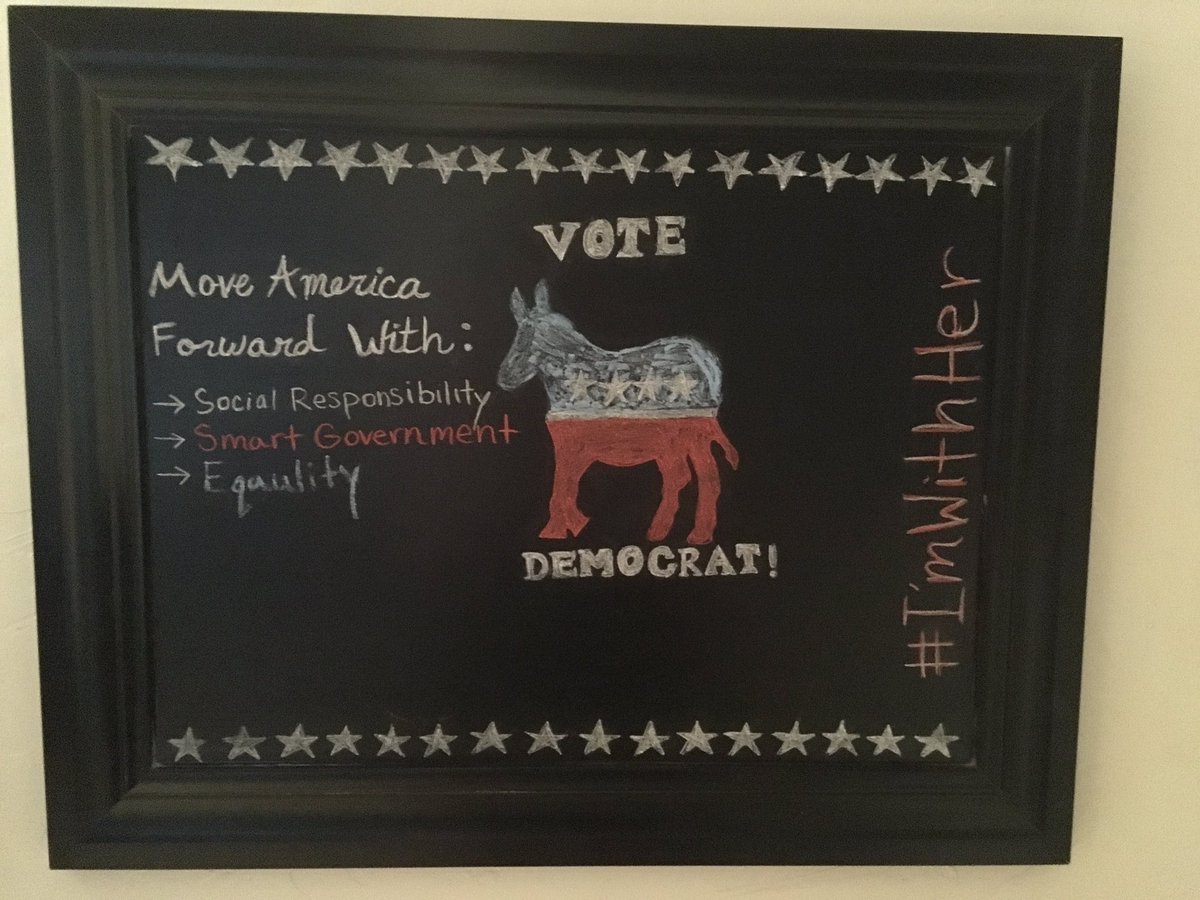 VOTE
Move America
Forward With:
→ Social Responsibility
→ Smart Government
→ Eqaulity
DEMOCRAT!
#I'mWithHer